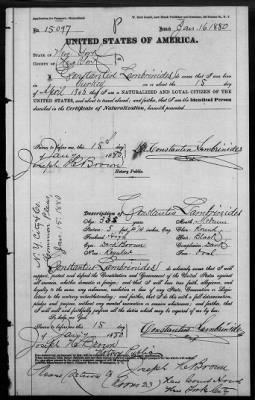 No 15097
P
Issued Jan 16 1880
UNITED STATES OF AMERICA.
State of New York
County of New York
I, Constantin Lambrinides do swear that I was born
in Turkey on or about the 15 day
of April that I am a NATURALIZED and LOYAL CITIZEN OF THE
UNITED STATES, and about to travel abroad; and further, that I am the Identical Person
described in the Certificate of Naturalization, herewith presented.
Sworn to before me this 15th
day of Jany 1880
Joseph H. Brown
Notary Public.
Constantin Lambrinides
N. Y. City & Co.
Common Pleas,
Jan 15 1880
Description of Constantin Lambrinides
Age:
Mouth: Medium
Stature: 5 feet
Chin: Round
Forehead:
Hair: Black
Eyes: Dark Brown
Complexion: Dark
Nose: Regular
Face: Oval
I, Constantin Lambrinides do solemnly swear that I will
support, protect and defend the Constitution and Government of the United States against
all enemies, whether domestic or foreign; and that I will bear true faith, allegiance and
loyalty to the same, any ordinance, resolution or law of any State, Convention or Legis-
lature to the contrary notwithstanding; and further, that I do this with a full determination,
pledge and purpose, without any mental reservation or evasion whatsoever; and further, that
I will well and faithfully perform all the duties which may be required of me by law.
So help me God.
Sworn to before me this 15
day of Jany 1880
Constantin Lambrinides
Joseph H. Brown
Notary Public
Joseph H. Brown
Room 23
New York City